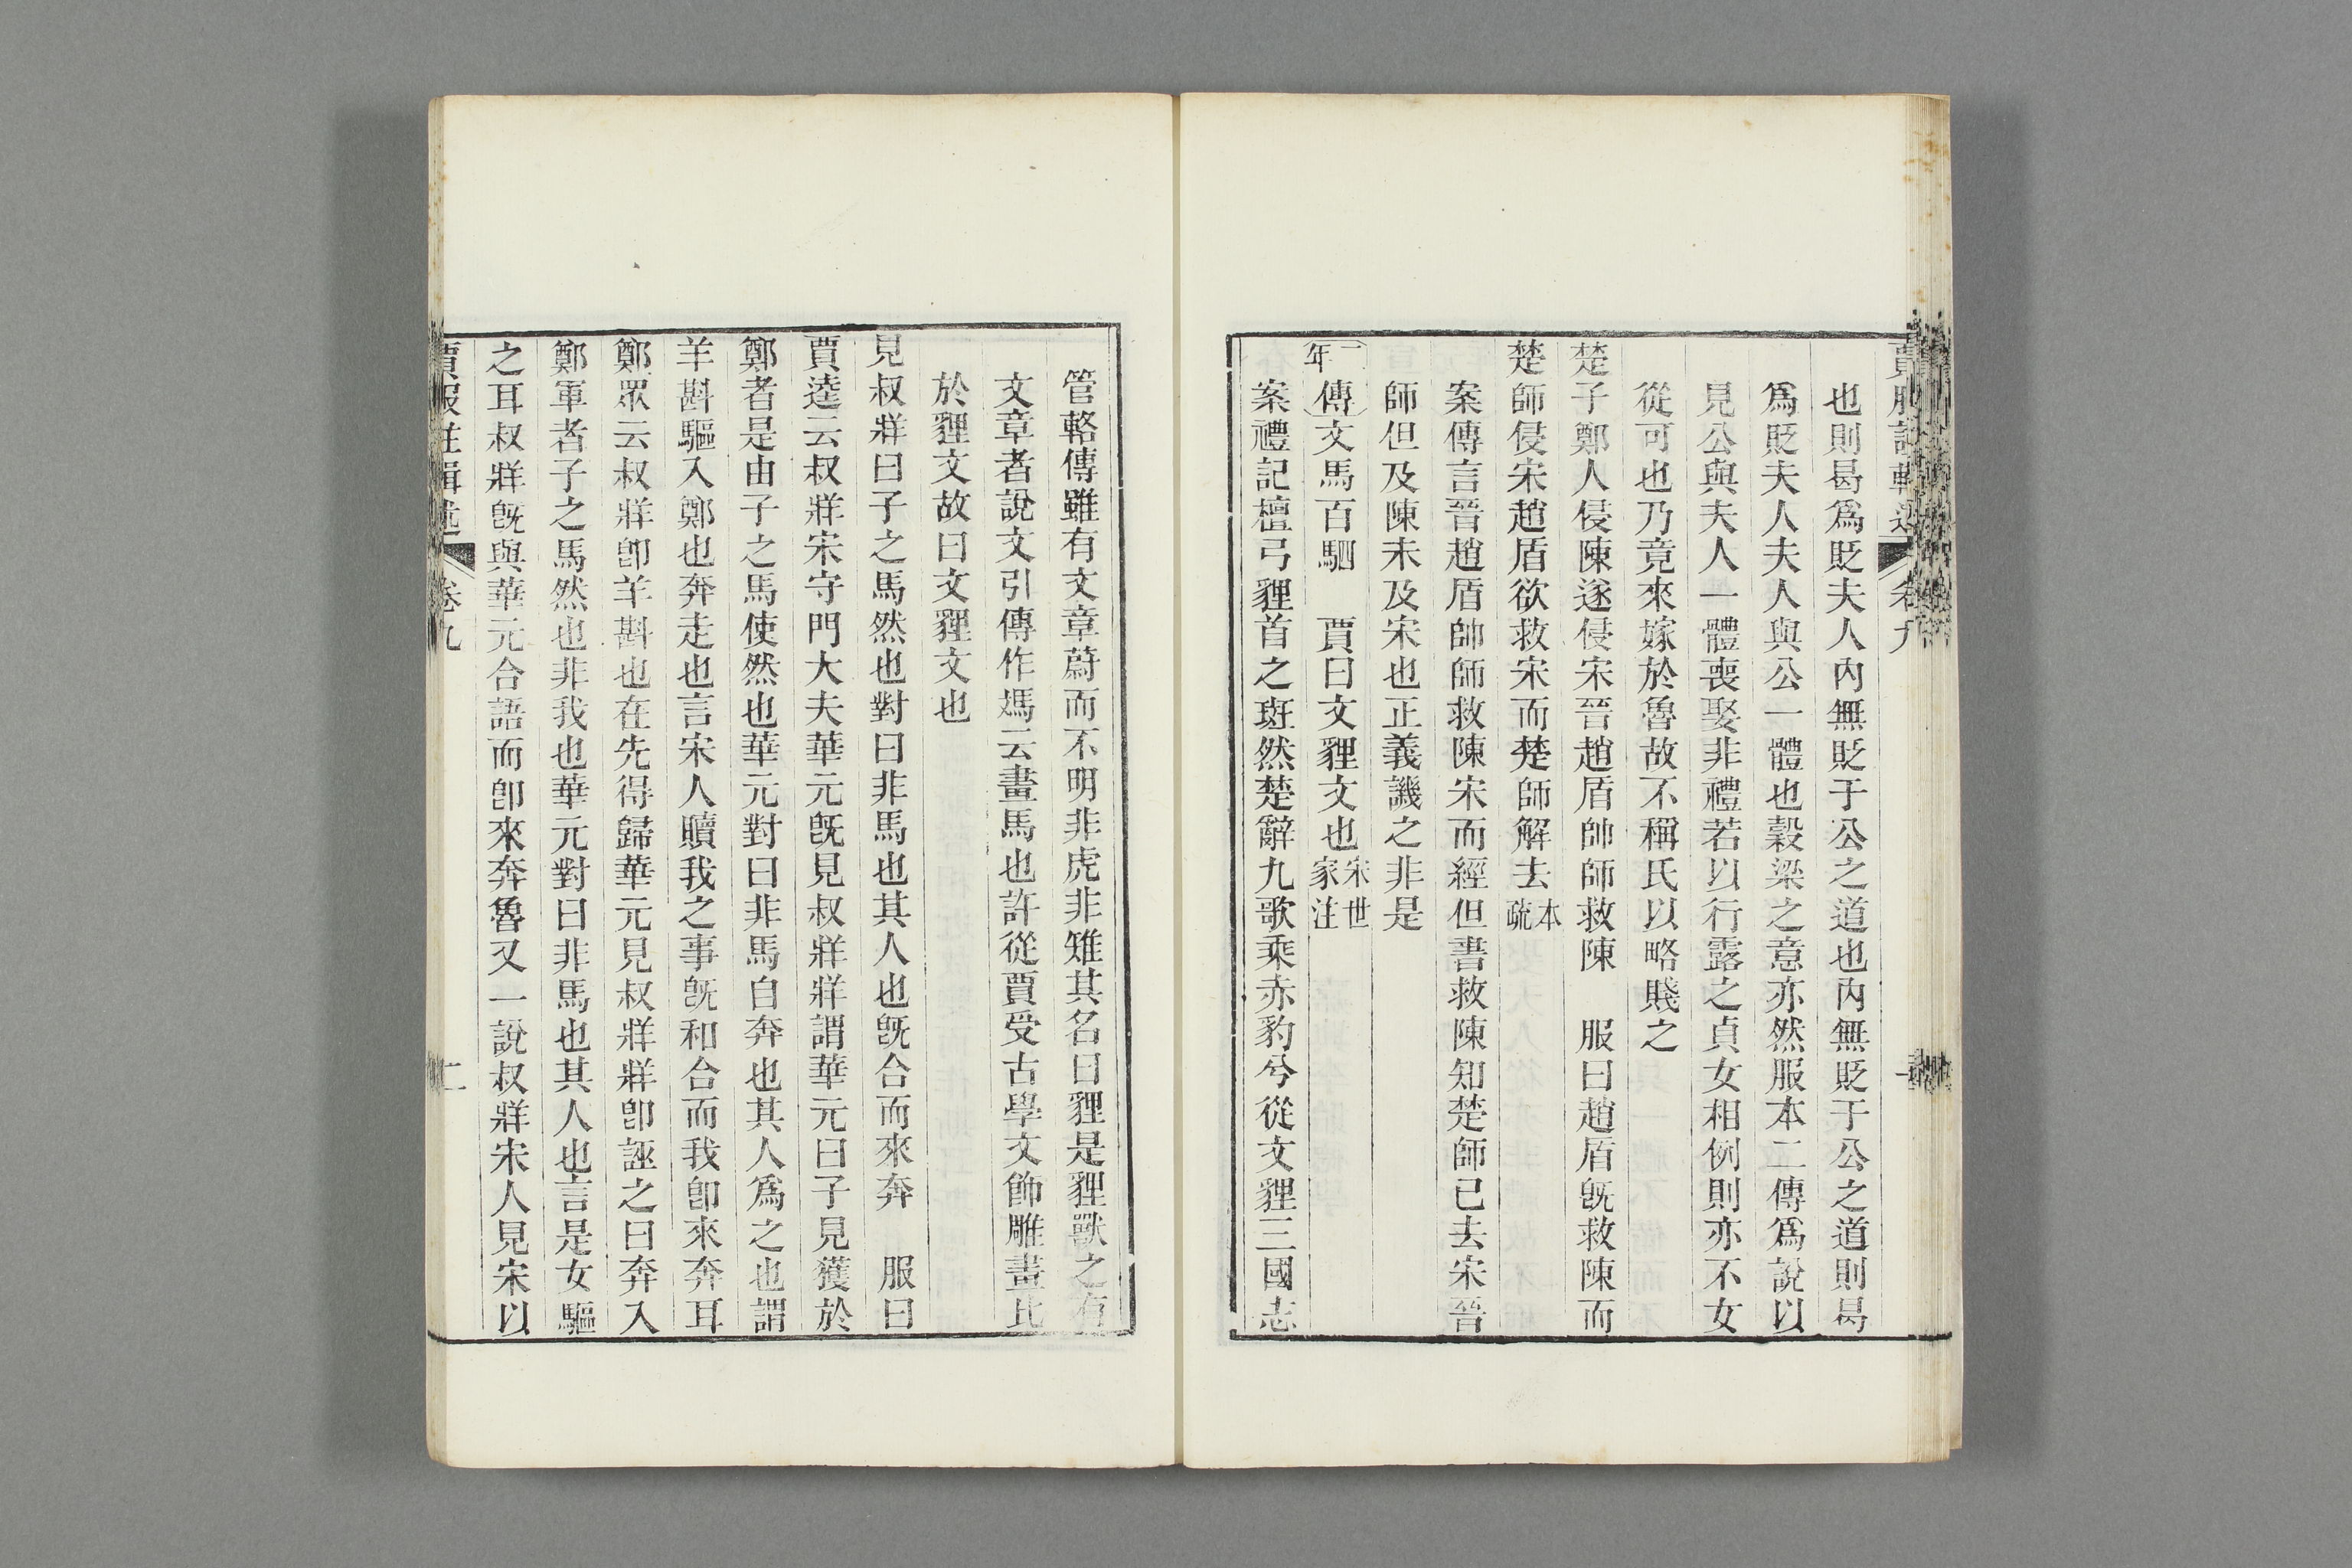 也則曷爲貶夫人內無貶于公之道也內無貶于公之道則曷
爲貶夫人夫人與公一體也穀梁之意亦然服本二傳爲說以
見公與夫人一體喪娶非禮若以行露之貞女相例則亦不女
從可也乃竟來嫁於魯故不稱氏以略賤之
楚子鄭人侵陳遂侵宋晉趙盾帥師救陳　服曰趙盾旣救陳而
楚師侵宋趙盾欲救宋而楚師解去本疏
案傳言晉趙盾帥師救陳宋而經但書救陳知楚師已去宋晉
師但及陳未及宋也正義譏之非是
二年傳文馬百駟　賈曰文貍文也宋世家注
案禮記檀弓貍首之斑然楚辭九歌乘赤豹兮從文貍三國志
管輅傳雖有文章蔚而不明非虎非雉其名曰貍是貍獸之有
文章者說文引傳作媽云畫馬也許從賈受古學文飾雕畫比
於貍文故曰文貍文也
見叔牂曰子之馬然也對曰非馬也其人也旣合而來奔　服曰
賈逵云叔牂宋守門大夫華元旣見叔牂牂謂華元曰子見獲於
鄭者是由子之馬使然也華元對曰非馬自奔也其人爲之也謂
羊斟驅入鄭也奔走也言宋人贖我之事旣和合而我卽來奔耳
鄭眾云叔牂卽羊斟也在先得歸華元見叔牂牂卽誣之曰奔入
鄭軍者子之馬然也非我也華元對曰非馬也其人也言是女驅
之耳叔牂旣與華元合語而卽來奔魯又一說叔牂宋人見宋以
賈服注輯述　卷九　二